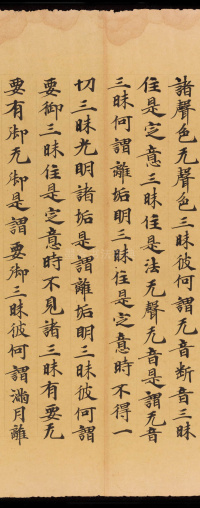 諸聲色无聲色三昧彼何謂无音断音三昧
住是定意三昧住是法无聲无音是謂无音
三昧何謂離垢明三昧住是定意時不得一
切三昧光明諸垢是謂離垢明三昧彼何謂
要御三昧住是定意時不見諸三昧有要无
要有御无御是謂要御三昧彼何謂滿月離